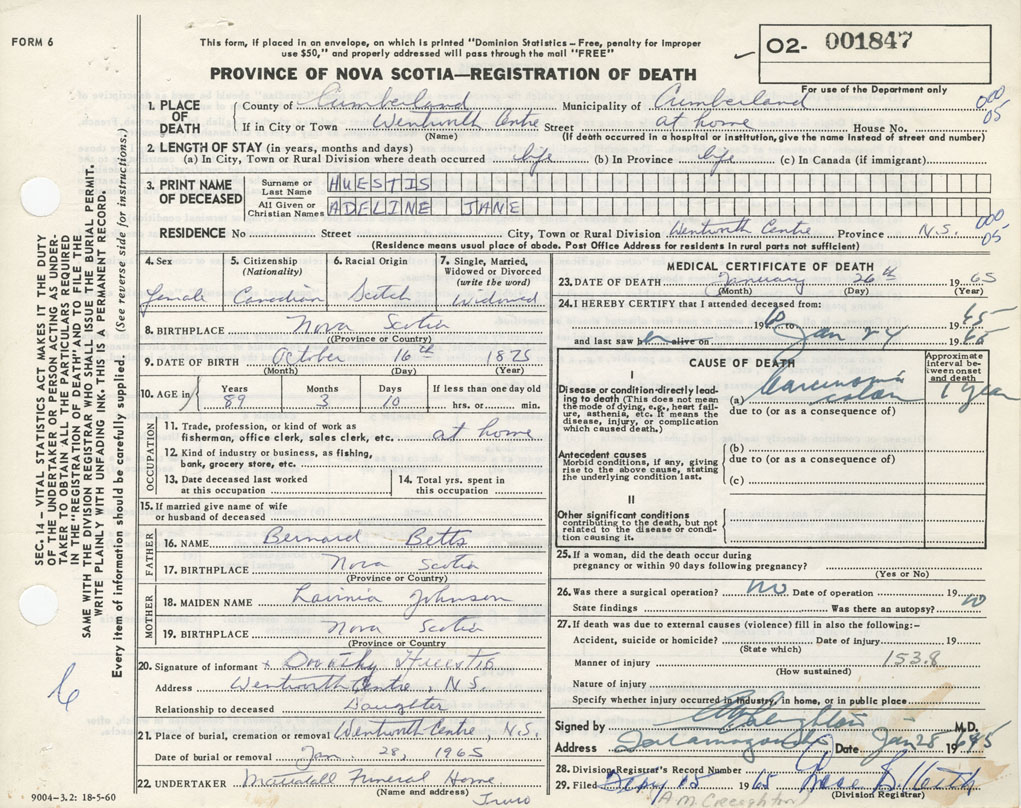 FORM 6
This form, if placed in an envelope, on which is printed "Dominion Statistics – Free, penalty for improper
use $50," and properly addressed will pass through the mail "FREE"
O2- 001847
For use of the Department only
PROVINCE OF NOVA SCOTIA—REGISTRATION OF DEATH
SEC. 14 – VITAL STATISTICS ACT MAKES IT THE DUTY
OF THE UNDERTAKER OR PERSON ACTING AS UNDER-
TAKER TO OBTAIN ALL THE PARTICULARS REQUIRED
IN THE "REGISTRATION OF DEATH" AND TO FILE THE
SAME WITH THE DIVISION REGISTRAR WHO SHALL ISSUE THE BURIAL PERMIT.
WRITE PLAINLY WITH UNFADING INK. THIS IS A PERMANENT RECORD.
Every item of information should be carefully supplied. (See reverse side for instructions.)
1. PLACE OF DEATH County of Cumberland Municipality of Cumberland 000 05
If in City or Town Wentworth Centre Street at home House No.
(Name) (If death occurred in a hospital or institution, give the name instead of street and number)
2. LENGTH OF STAY (in years, months and days)
(a) In City, Town or Rural Division where death occurred life (b) In Province life (c) In Canada (if immigrant)
3. PRINT NAME OF DECEASED Surname or Last Name HUESTIS
All Given or Christian Names ADELINE JANE
RESIDENCE No Street City, Town or Rural Division Wentworth Centre Province N.S. 000 05
(Residence means usual place of abode. Post Office Address for residents in rural parts not sufficient)
4. Sex female
5. Citizenship (Nationality) Canadian
6. Racial Origin Scotch
7. Single, Married, Widowed or Divorced (write the word) widowed
8. BIRTHPLACE Nova Scotia
(Province or Country)
9. DATE OF BIRTH October 16th 1875
(Month) (Day) (Year)
10. AGE in Years 89 Months 3 Days 10 If less than one day old hrs. or min.
OCCUPATION
11. Trade, profession, or kind of work as
fisherman, office clerk, sales clerk, etc. at home
12. Kind of industry or business, as fishing,
bank, grocery store, etc.
13. Date deceased last worked at this occupation
14. Total yrs. spent in this occupation
15. If married give name of wife
or husband of deceased
FATHER
16. NAME Bernard Betts
17. BIRTHPLACE Nova Scotia
(Province or Country)
MOTHER
18. MAIDEN NAME Lavinia Johnson
19. BIRTHPLACE Nova Scotia
(Province or Country)
20. Signature of informant x Dorothy Huestis
Address Wentworth Centre, N.S.
Relationship to deceased Daughter
21. Place of burial, cremation or removal Wentworth Centre, N.S.
Date of burial or removal Jan 28, 1965
22. UNDERTAKER Mattatall Funeral Home
(Name and address) Truro
9004-3.2: 18-5-60
MEDICAL CERTIFICATE OF DEATH
23. DATE OF DEATH January 26th 1965
(Month) (Day) (Year)
24. I HEREBY CERTIFY that I attended deceased from:
19 to Jan 24 1965
and last saw her alive on 1965
CAUSE OF DEATH
Approximate interval between onset and death
I
Disease or condition directly lead-
ing to death (This does not mean
the mode of dying, e.g., heart fail-
ure, asthenia, etc. It means the
disease, injury, or complication
which caused death.)
(a) Carcinoma colon 1 year
due to (or as a consequence of)
Antecedent causes
Morbid conditions, if any, giving
rise to the above cause, stating
the underlying condition last.
(b)
due to (or as a consequence of)
(c)
II
Other significant conditions
contributing to the death, but not
related to the disease or condi-
tion causing it.
25. If a woman, did the death occur during
pregnancy or within 90 days following pregnancy?
(Yes or No)
26. Was there a surgical operation? no Date of operation 19
State findings Was there an autopsy? no
27. If death was due to external causes (violence) fill in also the following:-
Accident, suicide or homicide? Date of injury 19
(State which)
Manner of injury 153.8
(How sustained)
Nature of injury
Specify whether injury occurred in industry, in home, or in public place
Signed by Creighton M.D.
Address Tatamagouche Date Jan 28 1965
28. Division Registrar's Record Number
29. Filed 15 1965
(Division Registrar)
A.M. Creighton